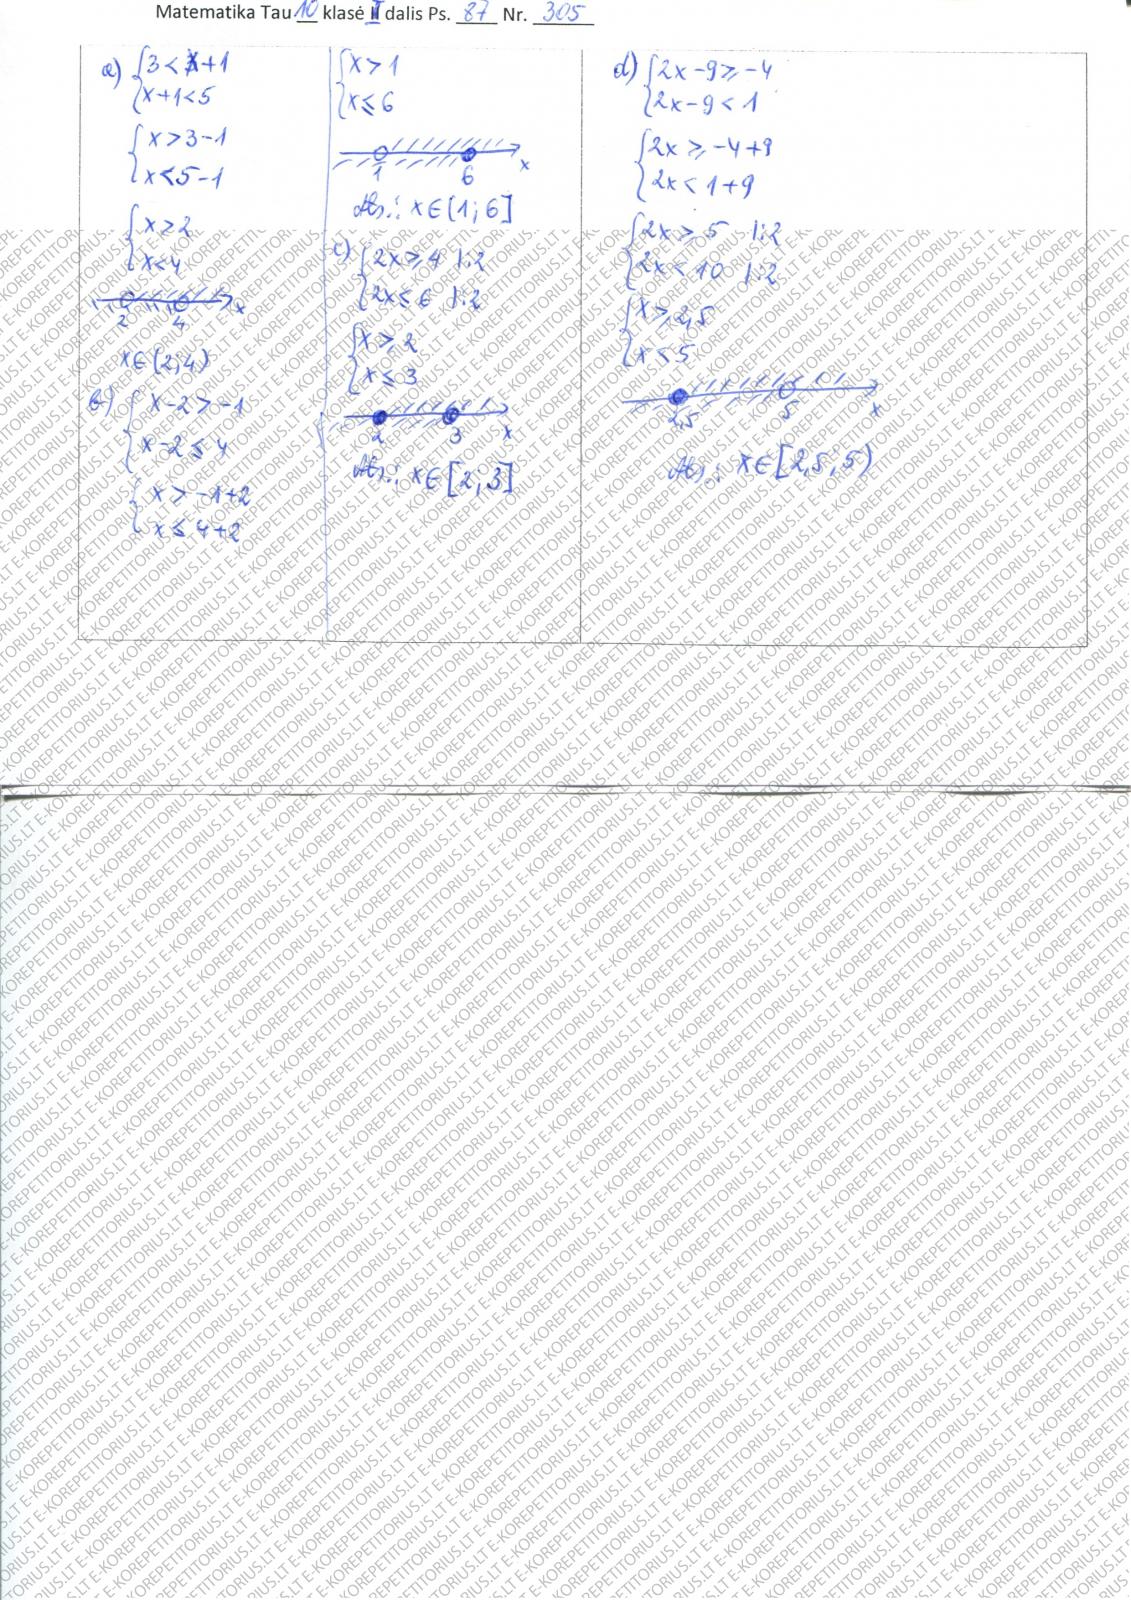 Matematika Tau 10 klasė II dalis Ps. 87 Nr. 305
a) { 3 < x+1
x+1 < 5
{ x > 3-1
x < 5-1
{ x > 2
x < 4
2 4 x
x ∈ (2; 4)
b) { x-2 > -1
x-2 ≤ 4
{ x > -1+2
x ≤ 4+2
{ x > 1
x ≤ 6
1 6 x
Ats.: x ∈ (1; 6]
c) { 2x ≥ 4 |:2
2x ≤ 6 |:2
{ x ≥ 2
x ≤ 3
2 3 x
Ats.: x ∈ [2; 3]
d) { 2x-9 ≥ -4
2x-9 < 1
{ 2x ≥ -4+9
2x < 1+9
{ 2x ≥ 5 |:2
2x < 10 |:2
{ x ≥ 2,5
x < 5
2,5 5 x
Ats.: x ∈ [2,5; 5)
E-KOREPETITORIUS.LT